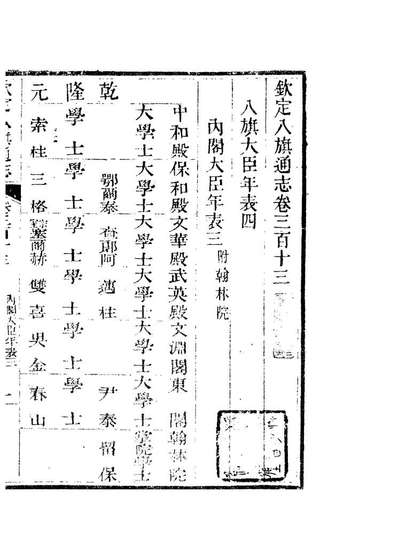 欽定八旗通志卷三百十三
八旗大臣年表四
內閣大臣年表三 附翰林院
中和殿保和殿文華殿武英殿文淵閣東 閣翰林院
大學士大學士大學士大學士大學士大學士掌院學士
鄂爾泰 查郎阿 邁柱 尹泰 留保
乾
隆 學士 學士 學士 學士 學士 學士
元 索柱 三格 雙喜 吳金 春山
欽定八旗通志
內閣大臣年表三